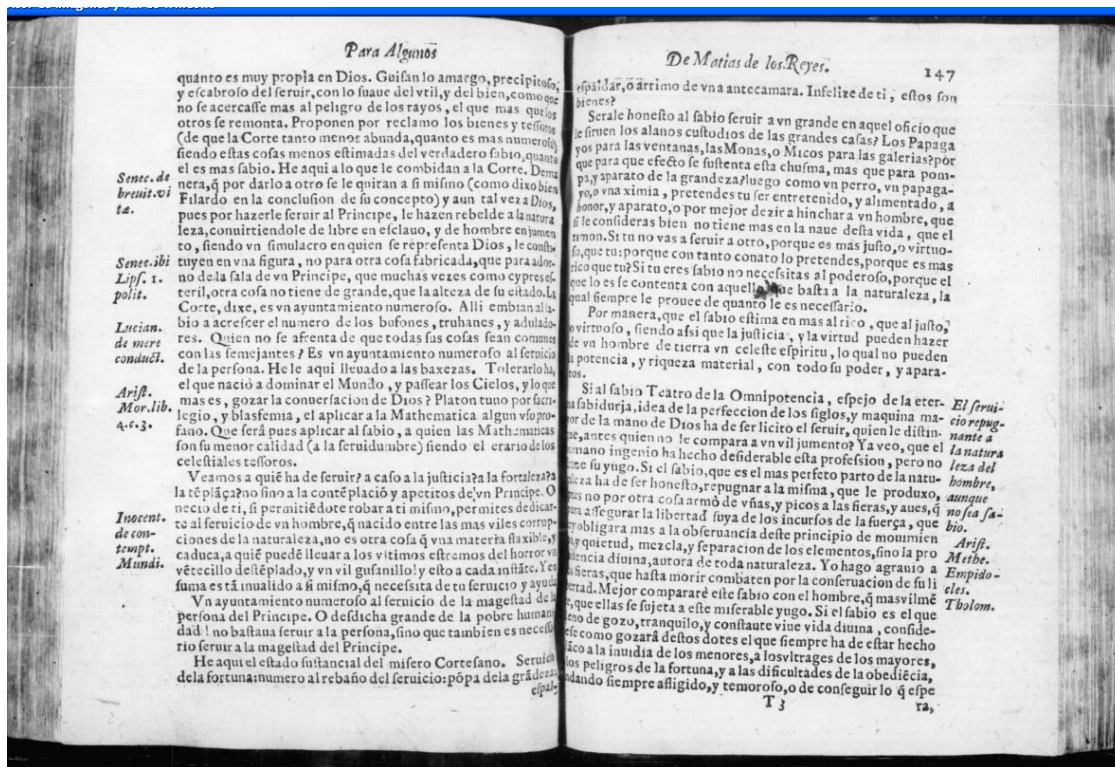 Para Algunos
quanto es muy propia en Dios. Guisan lo amargo, precipitoso,
y escabroso del seruir, con lo suaue del vtil, y del bien, como que
no se acercasse mas al peligro de los rayos, el que mas que los
otros se remonta. Proponen por reclamo los bienes y tessoros
(de que la Corte tanto menos abunda, quanto es mas numerosa)
siendo estas cosas menos estimadas del verdadero sabio, quanto
el es mas sabio. He aqui a lo que le combidan a la Corte. De ma
nera, q̃ por darlo a otro se le quitan a si mismo (como dixo bien
Filardo en la conclusion de su concepto) y aun tal vez a Dios,
pues por hazerle seruir al Principe, le hazen rebelde a la natura
leza, conuirtiendole de libre en esclauo, y de hombre en jumen
to, siendo vn simulacro en quien se representa Dios, le consti-
tuyen en vna figura, no para otra cosa fabricada, que para ador-
no de la sala de vn Principe, que muchas vezes como cypres es-
teril, otra cosa no tiene de grande, que la alteza de su estado. La
Corte, dixe, es vn ayuntamiento numeroso. Alli embian al sa-
bio a acrescer el numero de los bufones, truhanes, y adulado-
res. Quien no se afrenta de que todas sus cosas sean comunes
con las semejantes? Es vn ayuntamiento numeroso al seruicio
de la persona. He le aqui lleuado a las baxezas. Tolerarlo ha,
el que nació a dominar el Mundo, y passear los Cielos, y lo que
mas es, gozar la conuersacion de Dios? Platon tuuo por sacri-
legio, y blasfemia, el aplicar a la Mathematica algun vso pro-
fano. Que serà pues aplicar al sabio, a quien las Mathematicas
son su menor calidad (a la seruidumbre) siendo el erario de los
celestiales tessoros.
Veamos a quiē ha de seruir? a caso a la justicia? a la fortaleza? a
la tēplāça? no sino a la contēplació y apetitos de vn Principe. O
necio de ti, si permitiēdote robar a ti mismo, permites dedicar-
te al seruicio de vn hombre, q̃ nacido entre las mas viles corrup-
ciones de la naturaleza, no es otra cosa q̃ vna materia flaxible, y
caduca, a quiē puedē lleuar a los vltimos estremos del horror vn
vētecillo destēplado, y vn vil gusanillo! y esto a cada instāte. Y en
suma es tā inualido a si mismo, q̃ necessita de tu seruicio y ayuda
Vn ayuntamiento numeroso al seruicio de la magestad de la
persona del Principe. O desdicha grande de la pobre humani
dad! no bastaua seruir a la persona, sino que tambien es necessa
rio seruir a la magestad del Principe.
He aqui el estado sustancial del misero Cortesano. Seruicio
de la fortuna: numero al rebaño del seruicio: pōpa de la grādeza:
espal-
Senec. de
breuit. vi
tæ.
Senec. ibi
Lips. 1.
polit.
Lucian.
de mere
conduct.
Arist.
Mor. lib.
4. c. 3.
Inocent.
de con-
tempt.
Mundi.
De Matias de los Reyes.
147
espaldar, o arrimo de vna antecamara. Infelize de ti, estos son
bienes?
Serale honesto al sabio seruir a vn grande en aquel oficio que
le siruen los alanos custodios de las grandes casas? Los Papaga
yos para las ventanas, las Monas, o Micos para las galerias? por
que para que efecto se sustenta esta chusma, mas que para pom-
pa, y aparato de la grandeza? luego como vn perro, vn papaga-
yo, o vna ximia, pretendes tu ser entretenido, y alimentado, a
honor, y aparato, o por mejor dezir a hinchar a vn hombre, que
si le consideras bien no tiene mas en la naue desta vida, que el
timon. Si tu no vas a seruir a otro, porque es mas justo, o virtuo-
so, que tu: porque con tanto conato lo pretendes, porque es mas
rico que tu? Si tu eres sabio no necessitas al poderoso, porque el
que lo es se contenta con aquello que basta a la naturaleza, la
qual siempre le prouee de quanto le es necessario.
Por manera, que el sabio estima en mas al rico, que al justo,
o virtuoso, siendo assi que la justicia, y la virtud pueden hazer
de vn hombre de tierra vn celeste espiritu, lo qual no pueden
la potencia, y riqueza material, con todo su poder, y apara-
tos.
Si al sabio Teatro de la Omnipotencia, espejo de la eter-
na sabidurja, idea de la perfeccion de los siglos, y maquina ma-
yor de la mano de Dios ha de ser licito el seruir, quien le distin-
gue, antes quien no le compara a vn vil jumento? Ya veo, que el
humano ingenio ha hecho desiderable esta profession, pero no
su yugo. Si el sabio, que es el mas perfeto parto de la natu-
raleza ha de ser honesto, repugnar a la misma, que le produxo,
pues no por otra cosa armò de vñas, y picos a las fieras, y aues, q̃
para assegurar la libertad suya de los incursos de la fuerça, que
obligara mas a la obseruancia deste principio de mouimien
to, y quietud, mezcla, y separacion de los elementos, sino la pro
uidencia diuina, autora de toda naturaleza. Yo hago agrauio a
las fieras, que hasta morir combaten por la conseruacion de su li
bertad. Mejor compararè este sabio con el hombre, q̃ mas vilmē
te, que ellas se sujeta a este miserable yugo. Si el sabio es el que
lleno de gozo, tranquilo, y constaute viue vida diuina, conside-
rese como gozarà destos dotes el que siempre ha de estar hecho
blāco a la inuidia de los menores, a los vltrages de los mayores,
a los peligros de la fortuna, y a las dificultades de la obediēcia,
andando siempre afligido, y temoroso, o de conseguir lo q̃ espe
T 3
ra,
El serui-
cio repug-
nante a
la natura
leza del
hombre,
aunque
no sea sa-
bio.
Arist.
Methe.
Empido-
cles.
Tholom.